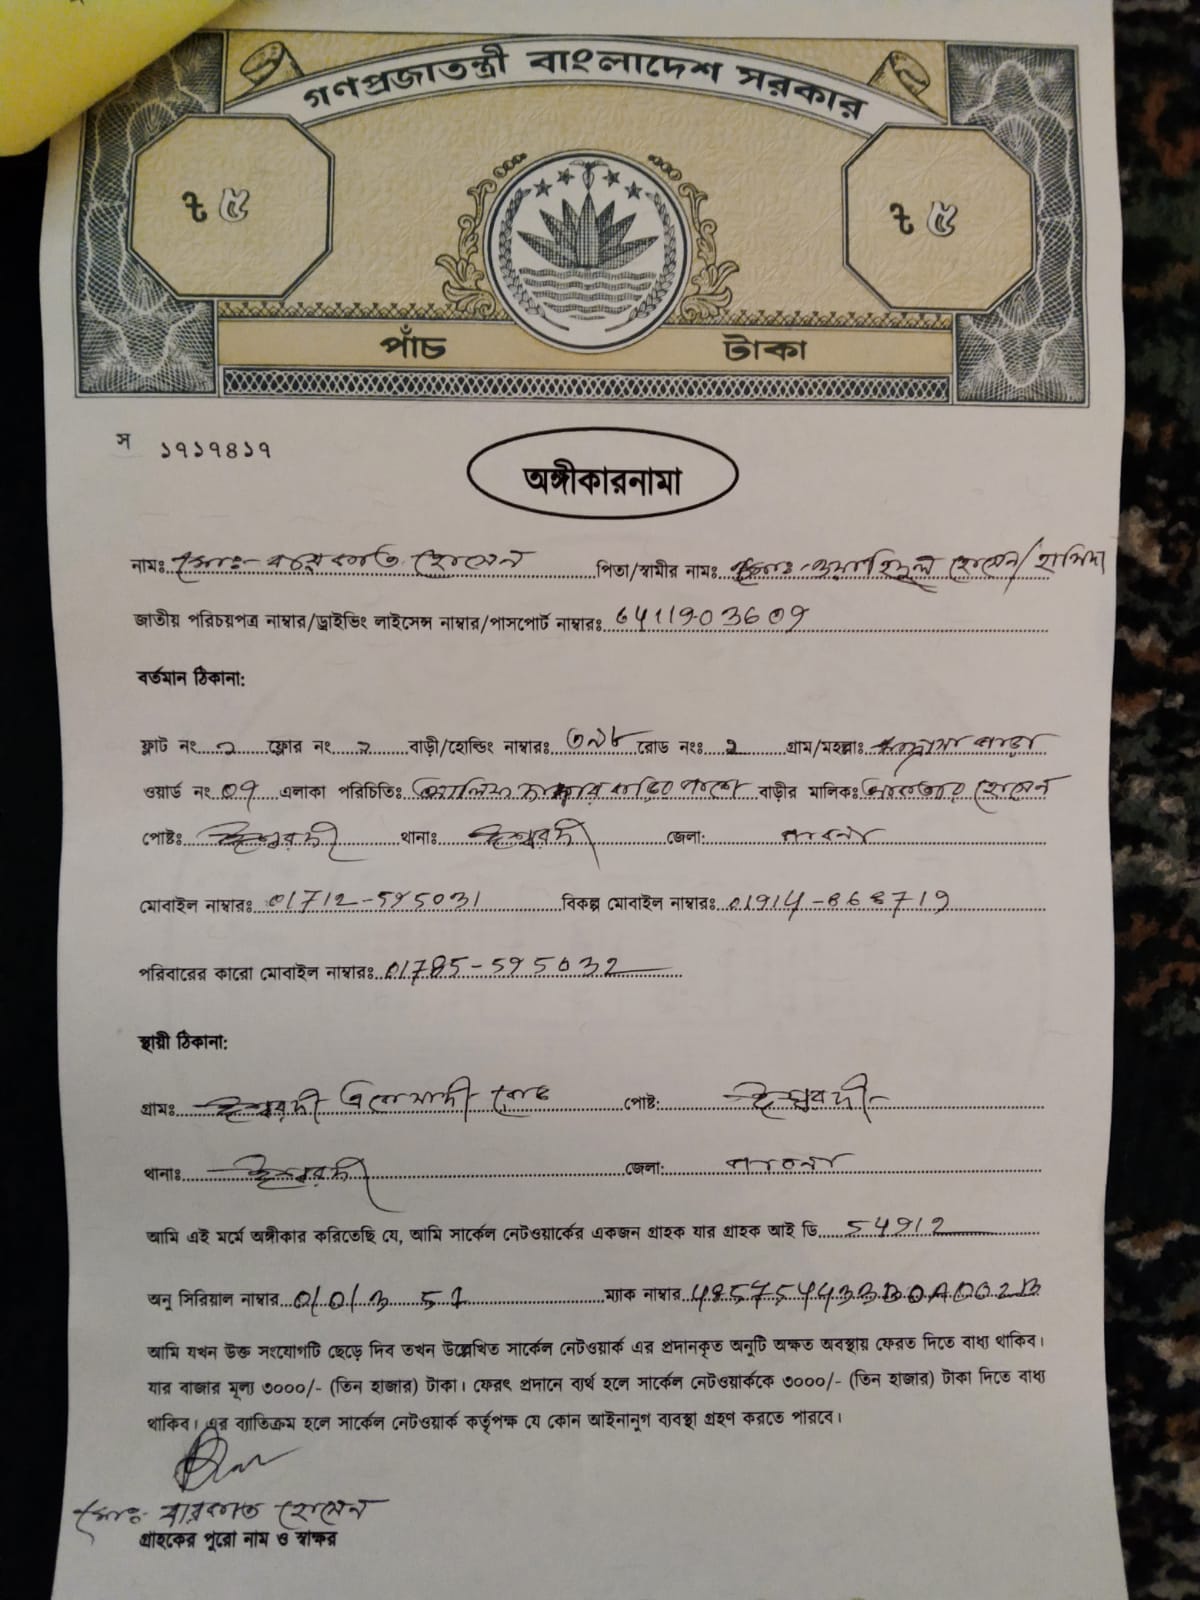 গণপ্রজাতন্ত্রী বাংলাদেশ সরকার
৳ ৫ ৳ ৫
পাঁচ টাকা
স ১৭১৭৪১৭
অঙ্গীকারনামা
নামঃ মোঃ- বারকাত হোসেন পিতা/স্বামীর নামঃ মোঃ- হোসেন/
জাতীয় পরিচয়পত্র নাম্বার/ড্রাইভিং লাইসেন্স নাম্বার/পাসপোর্ট নাম্বারঃ
বর্তমান ঠিকানা:
ফ্লাট নং ফ্লোর নং বাড়ী/হোল্ডিং নাম্বারঃ রোড নংঃ গ্রাম/মহল্লাঃ পাড়া
ওয়ার্ড নং এলাকা পরিচিতিঃ বাড়ীর মালিকঃ হোসেন
পোষ্টঃ ঈশ্বরদী থানাঃ ঈশ্বরদী জেলা: পাবনা
মোবাইল নাম্বারঃ 01712-595031 বিকল্প মোবাইল নাম্বারঃ
পরিবারের কারো মোবাইল নাম্বারঃ 01785-595032
স্থায়ী ঠিকানা:
গ্রামঃ ঈশ্বরদী রোড পোষ্ট: ঈশ্বরদী
থানাঃ ঈশ্বরদী জেলা: পাবনা
আমি এই মর্মে অঙ্গীকার করিতেছি যে, আমি সার্কেল নেটওয়ার্কের একজন গ্রাহক যার গ্রাহক আই ডি 54912
অনু সিরিয়াল নাম্বার ম্যাক নাম্বার
আমি যখন উক্ত সংযোগটি ছেড়ে দিব তখন উল্লেখিত সার্কেল নেটওয়ার্ক এর প্রদানকৃত অনুটি অক্ষত অবস্থায় ফেরত দিতে বাধ্য থাকিব।
যার বাজার মূল্য ৩০০০/- (তিন হাজার) টাকা। ফেরৎ প্রদানে ব্যর্থ হলে সার্কেল নেটওয়ার্ককে ৩০০০/- (তিন হাজার) টাকা দিতে বাধ্য
থাকিব। এর ব্যাতিক্রম হলে সার্কেল নেটওয়ার্ক কর্তৃপক্ষ যে কোন আইনানুগ ব্যবস্থা গ্রহণ করতে পারবে।
মোঃ- বারকাত হোসেন
গ্রাহকের পুরো নাম ও স্বাক্ষর